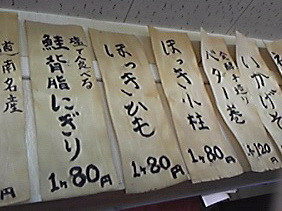 南名産
円
塩で食べる
鮭背脂にぎり
1ヶ80円
ほっきひも
1ヶ80円
ほっき小柱
1ヶ80円
バター巻
1ヶ80円
いかげそ
1ヶ120円